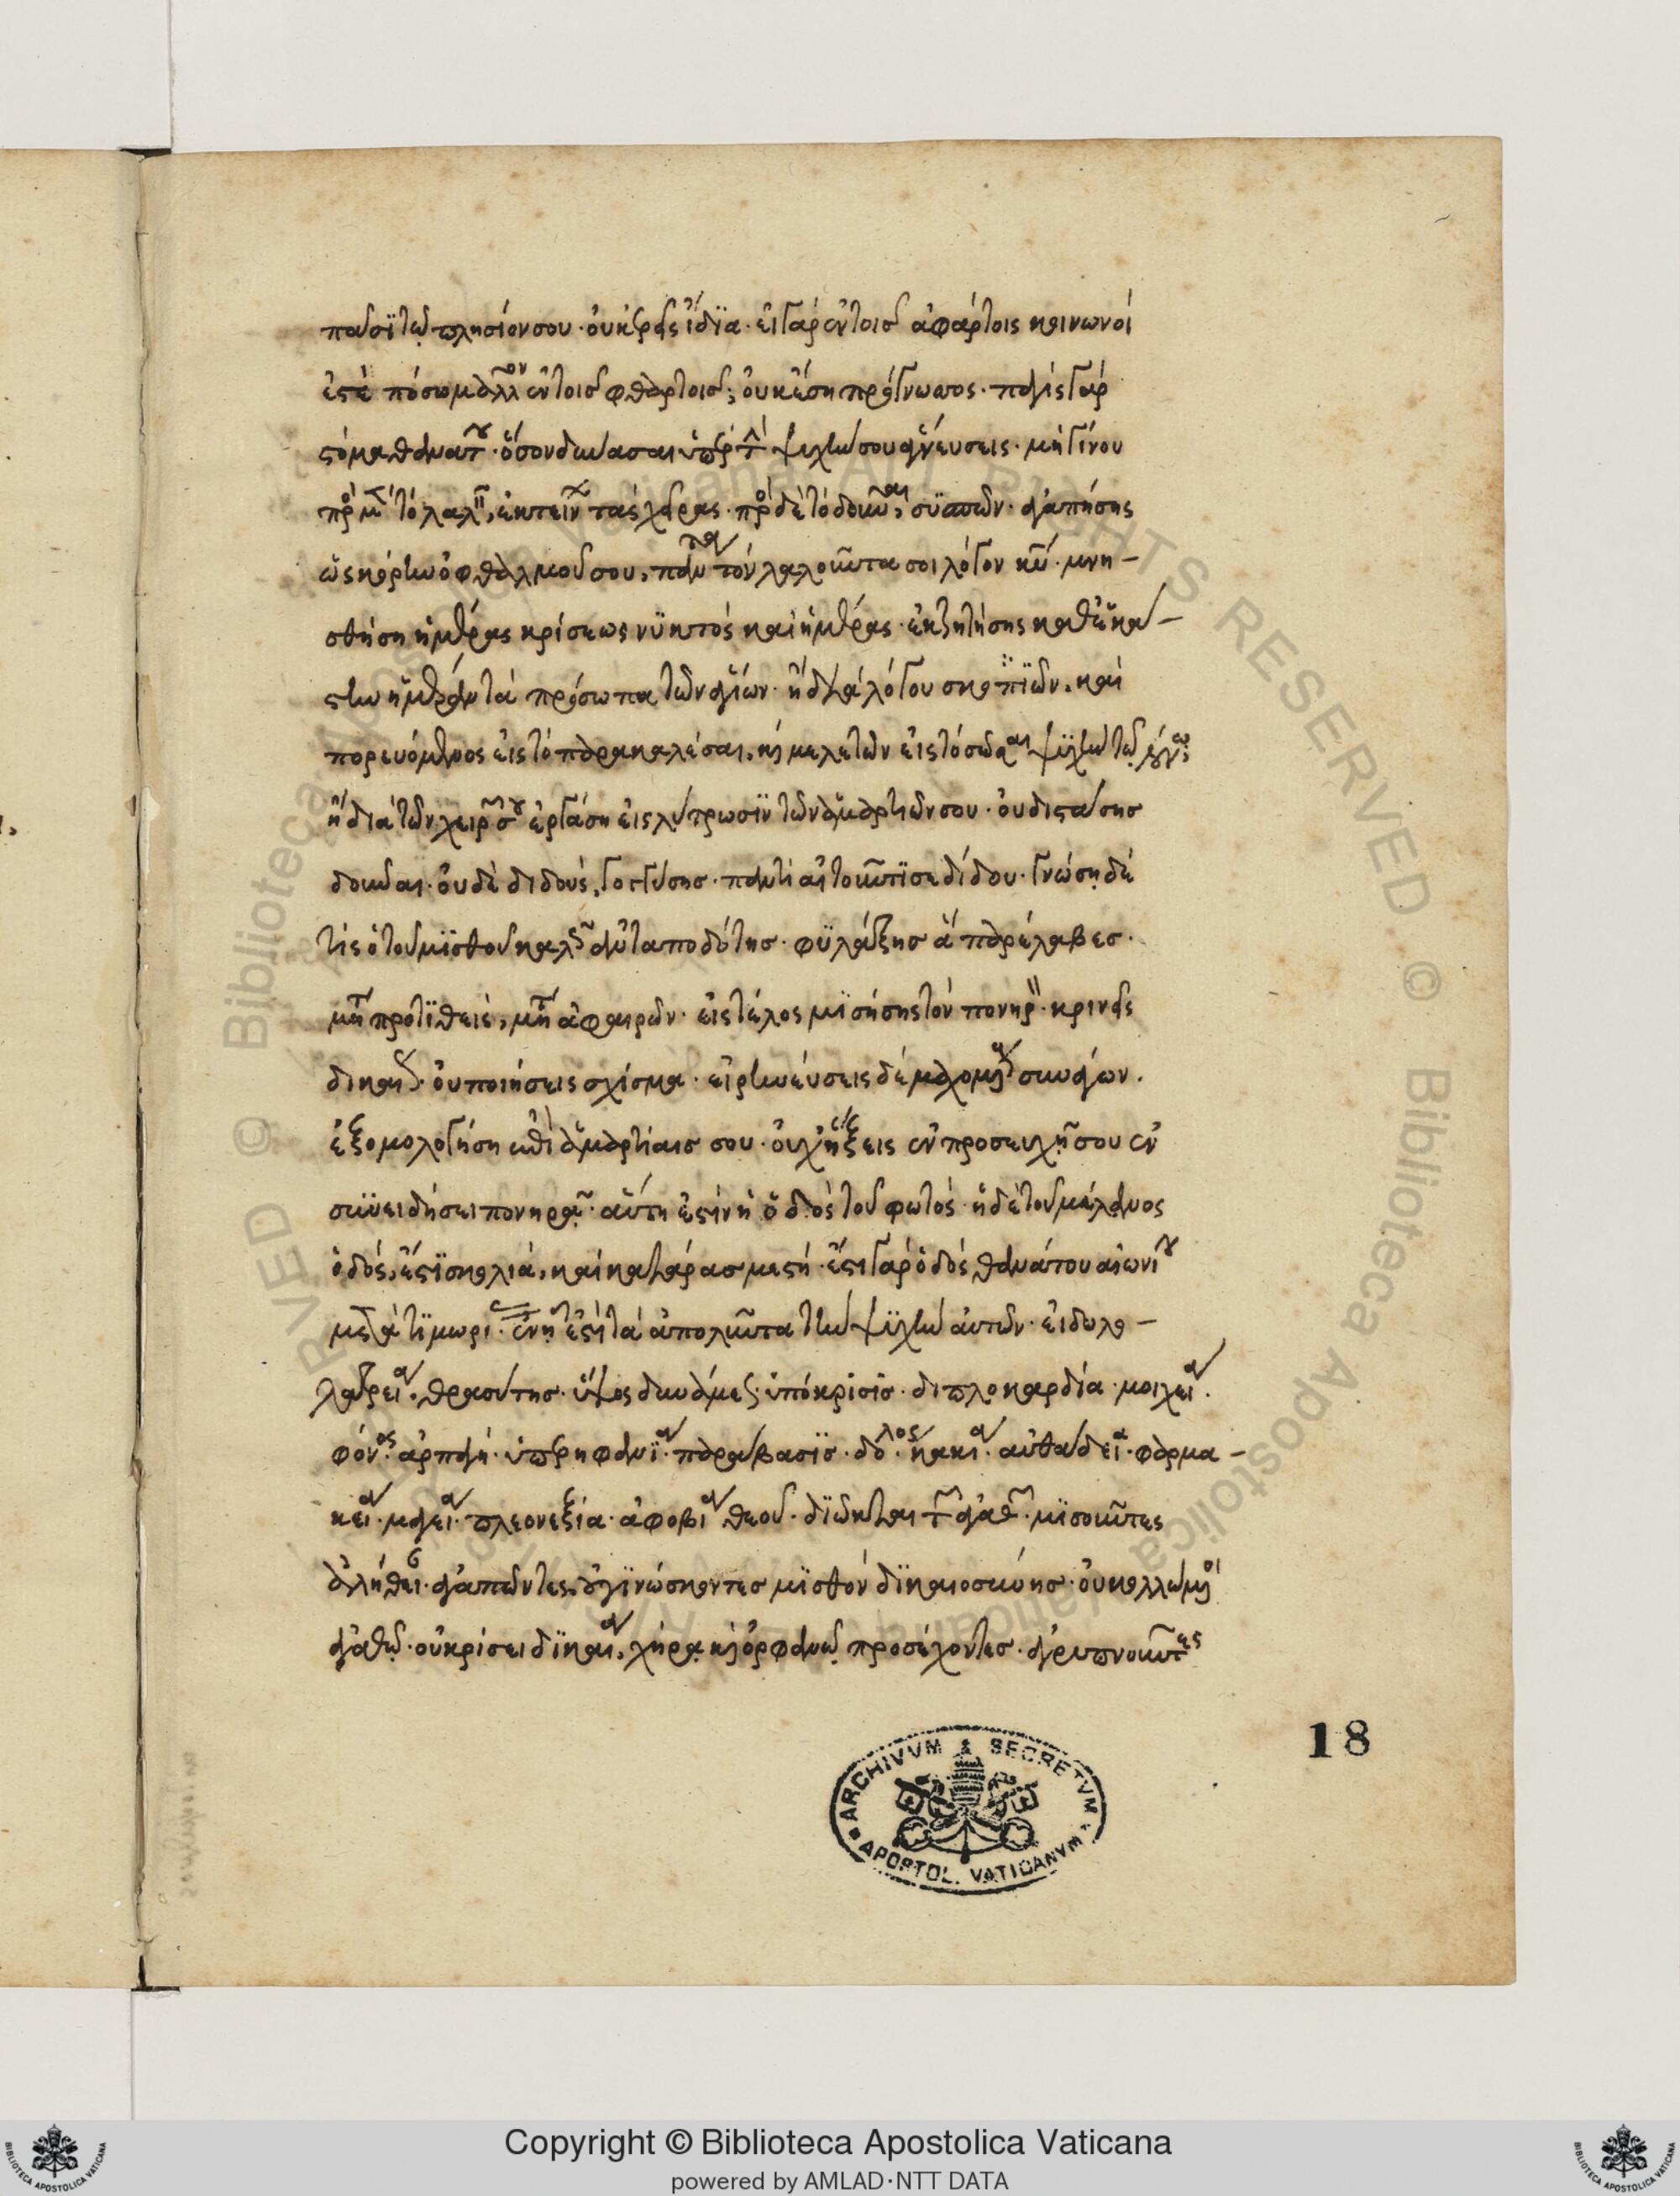 πασϊ τῷ πλησίον σου· οὐκ ἐρεῖς ἴδϊα· εἰ γάρ ἐν τοισ ἀφάρτοις κοινωνοί
ἐστὲ πόσω μᾶλλον ἐν τοισ φθαρτοισ; οὐκ ἔση πρόγνωσος· παγὶς γάρ
στόμα θανάτου· ὅσον δύνασαι ὑπὲρ τὴν ψυχὴν σου ἁγνεύσεις· μὴ γίνου
πρὸς μὲν τὸ λαβεῖν, ἐκτείνων τὰς χεῖρας· πρὸς δὲ τὸ δοῦναι, σϋσπῶν· ἀγαπήσης
ὡς κόρην ὀφθαλμοῦ σου, πάντα τὸν λαλοῦντα σοι λόγον κυ· μνη–
σθήση ἡμέρας κρίσεως νϋκτὸς καὶ ἡμέρας· ἐκζητήσης καθ' ἑκά–
στην ἡμέραν τὰ πρόσωπα τῶν ἁγίων· ἢ διὰ λόγου σκοπϊῶν, καὶ
πορευόμενος εἰς τὸ παρακαλέσαι, κὶ μελετῶν εἰς τὸ σῶσαι ψϋχὴν τῷ λόγω;
ἢ διὰ τῶν χειρῶν σου ἐργάση εἰς λύτρωσϊν τῶν ἁμαρτιῶν σου· οὐ διστάσησ
δοῦναι· οὐδὲ διδοὺς, γογγύσησ· παντὶ αἰτοῦντϊ σε δίδου· γνώσῃ δὲ
τίς ὁ τοῦ μϊσθοῦ καλὸς ἀνταποδότησ· φϋλάξησ ἅ παρέλαβεσ·
μήτε προτϊθεὶς, μήτε ἀφαιρῶν· εἰς τέλος μϊσήσης τὸν πονηρόν· κρινεῖς
δικαίως· οὐ ποιήσεις σχίσμα· εἰρηνεύσεις δὲ μαχομένους συναγών·
ἐξομολογήση ἐπὶ ἁμαρτίαισ σου· οὐχ ἥξεις ἐν προσευχῇ σου ἐν
συνειδήσει πονηρᾷ· αὕτη ἐστὶν ἡ ὁδὸς τοῦ φωτός· ἡ δὲ τοῦ μέλανος
ὁδός, ἐστϊ σκολιὰ, καὶ κατάρασ μεστή· ἔστι γὰρ ὁδὸς θανάτου αἰωνίου
μετὰ τϊμωρι· ἐν ᾗ ἐστὶ τὰ ἀπολοῦντα τὴν ψϋχὴν αὐτῶν· εἰδολο–
λατρεία, θρασύτησ· ὕψος δυνάμεως· ὑπόκρισϊς· διπλοκαρδία· μοιχεία·
φόνος· ἁρπαγή· ὑπερηφανϊα· παράβασϊς· δόλος· κακία· αὐθάδεια· φαρμα–
κεία· μαγεία· πλεονεξία· ἀφοβία θεοῦ· δϊῶκται τῶν ἀγαθῶν· μϊσοῦντες
ἀλήθει· ἀγαπῶντες, οὐ γϊνώσκοντεσ μϊσθὸν δϊκαιοσύνησ· οὐ κολλώμενοι
ἀγαθῷ· οὐ κρίσει δϊκαία, χήρᾳ κὶ ὀρφανῷ προσέχοντεσ· ἀγρυπνοῦντες
18
ARCHIVVM SECRETVM
APOSTOL. VATICANVM
Copyright © Biblioteca Apostolica Vaticana
powered by AMLAD·NTT DATA